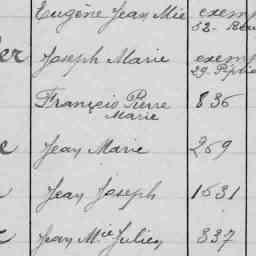 Eugène Jean Mie exem
52-
er Joseph Marie exem
29.
François Pierre 836
Marie
e Jean Marie 269
Jean Joseph 1631
Jean Mie Julien 337